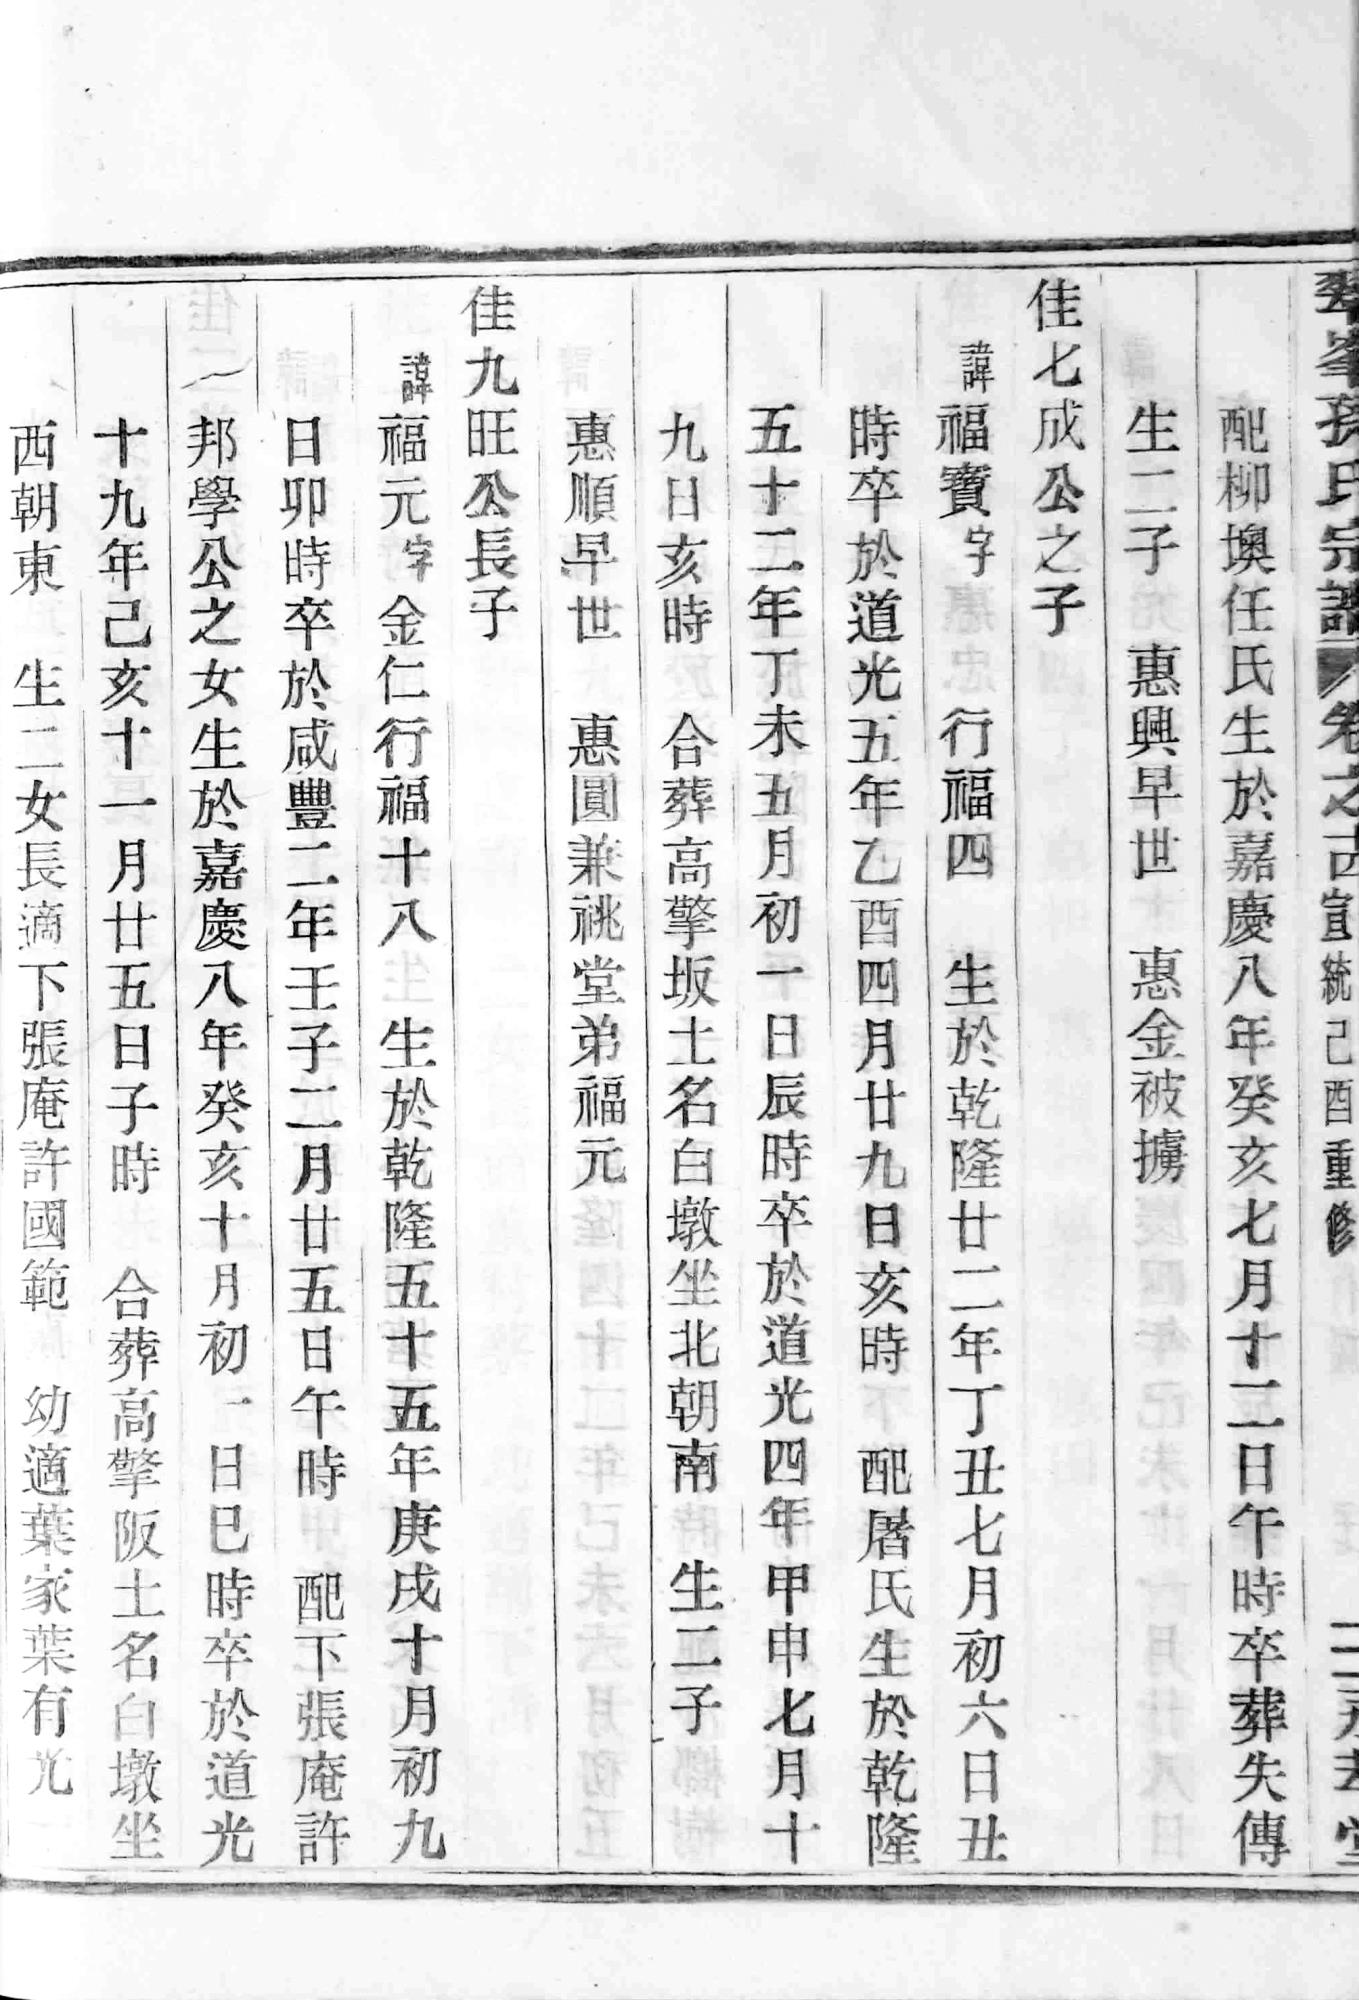 峯孫氏宗譜 卷之 宣統己酉重修 二 堂
配柳墺任氏生於嘉慶八年癸亥七月十二日午時卒葬失傳
生二子 惠興早世 惠金被擄
佳七成公之子
諱福寶字 行福四 生於乾隆廿二年丁丑七月初六日丑
時卒於道光五年乙酉四月廿九日亥時 配屠氏生於乾隆
五十二年丁未五月初一日辰時卒於道光四年甲申七月十
九日亥時 合葬高擎坂土名白墩坐北朝南 生二子
惠順早世 惠圓兼祧堂弟福元
佳九旺公長子
諱福元字金仁行福十八 生於乾隆五十五年庚戌十月初九
日卯時卒於咸豐二年壬子二月廿五日午時 配下張庵許
邦學公之女生於嘉慶八年癸亥十月初一日巳時卒於道光
十九年己亥十一月廿五日子時 合葬高擎阪土名白墩坐
西朝東 生二女長適下張庵許國範 幼適葉家葉有光